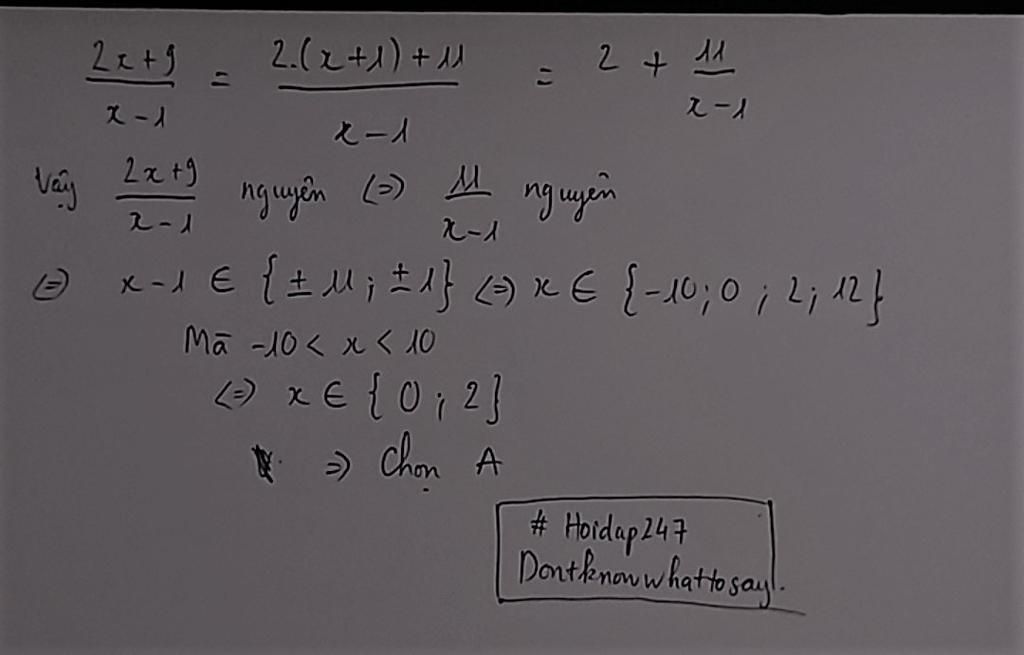 2x+9 / x-1 = 2.(x+1)+11 / x-1 = 2 + 11 / x-1
Vậy 2x+9 / x-1 nguyên (=) 11 / x-1 nguyên
(=) x-1 ∈ {±11; ±1} <=> x ∈ {-10; 0; 2; 12}
Mā -10 < x < 10
<=> x ∈ {0; 2}
=> Chọn A
# Hoidap247
Dontknowwhattosay.